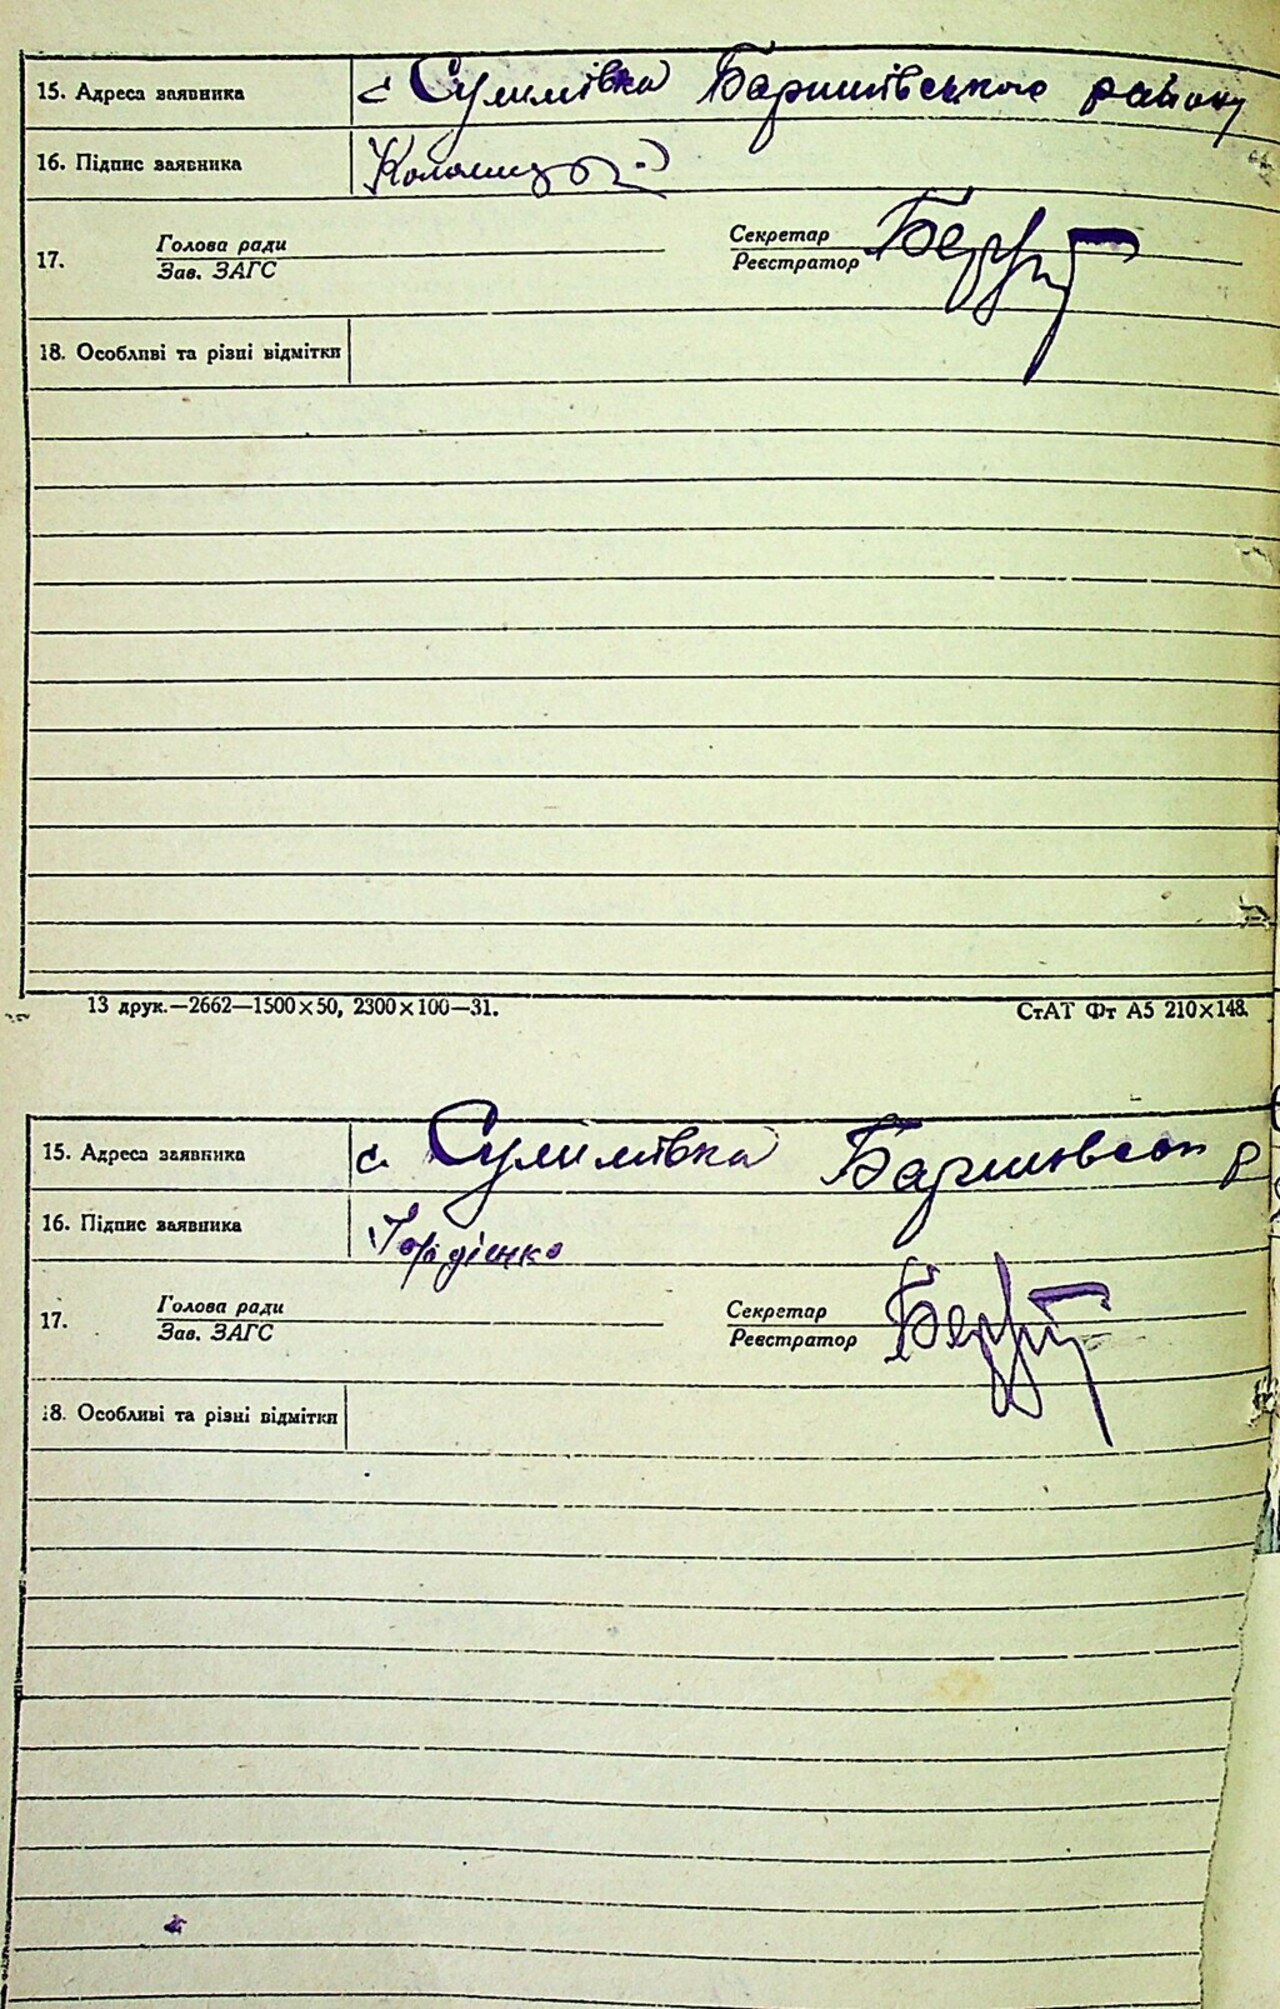 15. Адреса заявника с Сулимівка Баришівського району
16. Підпис заявника
17. Голова ради Секретар
Зав. ЗАГС Реєстратор
18. Особливі та різні відмітки
13 друк.—2662—1500×50, 2300×100—31. СтАТ Фт А5 210×148.
15. Адреса заявника с. Сулимівка р
16. Підпис заявника Гордієнко
17. Голова ради Секретар
Зав. ЗАГС Реєстратор
18. Особливі та різні відмітки